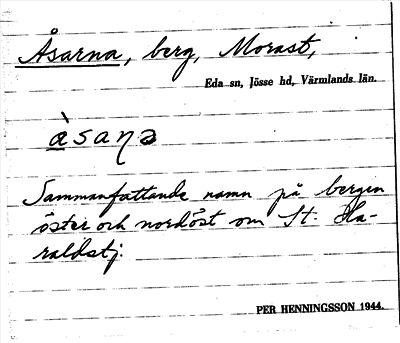 Åsarna, berg, Morast,
Eda sn, Jösse hd, Värmlands län.
àsaṇə
Sammanfattande namn på bergen
öster och nordöst om St. Ha-
raldstj.
PER HENNINGSSON 1944.